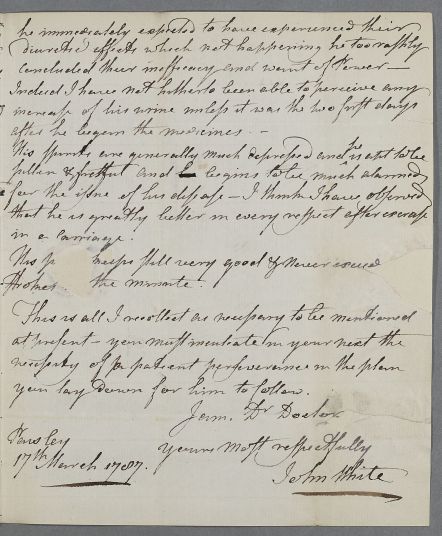 he immediately expected to have experienced their
diuretic effects which not happening he too rashly
concluded their inefficacy and want of Power —
Indeed I have not hitherto been able to perceive any
increase of his urine unless it was the two first days
after he began the medicines. —
His spirits are generally much depressed and he is apt to be
sullen & fretfull and begins to be much alarmed
for the issue of his disease — I think I have observed
that he is greatly better in every respect after exercise
in a carriage.
His p keeps still very good & never exceed
the minute.
This is all I recollect as necessary to be mentioned
at present — you must inculcate in your next the
necessity of a patient perseverance in the plan
you lay down for him to follow.
I am. Dr Doctor
Paisley yours most respectfully
17th March 1787. John White